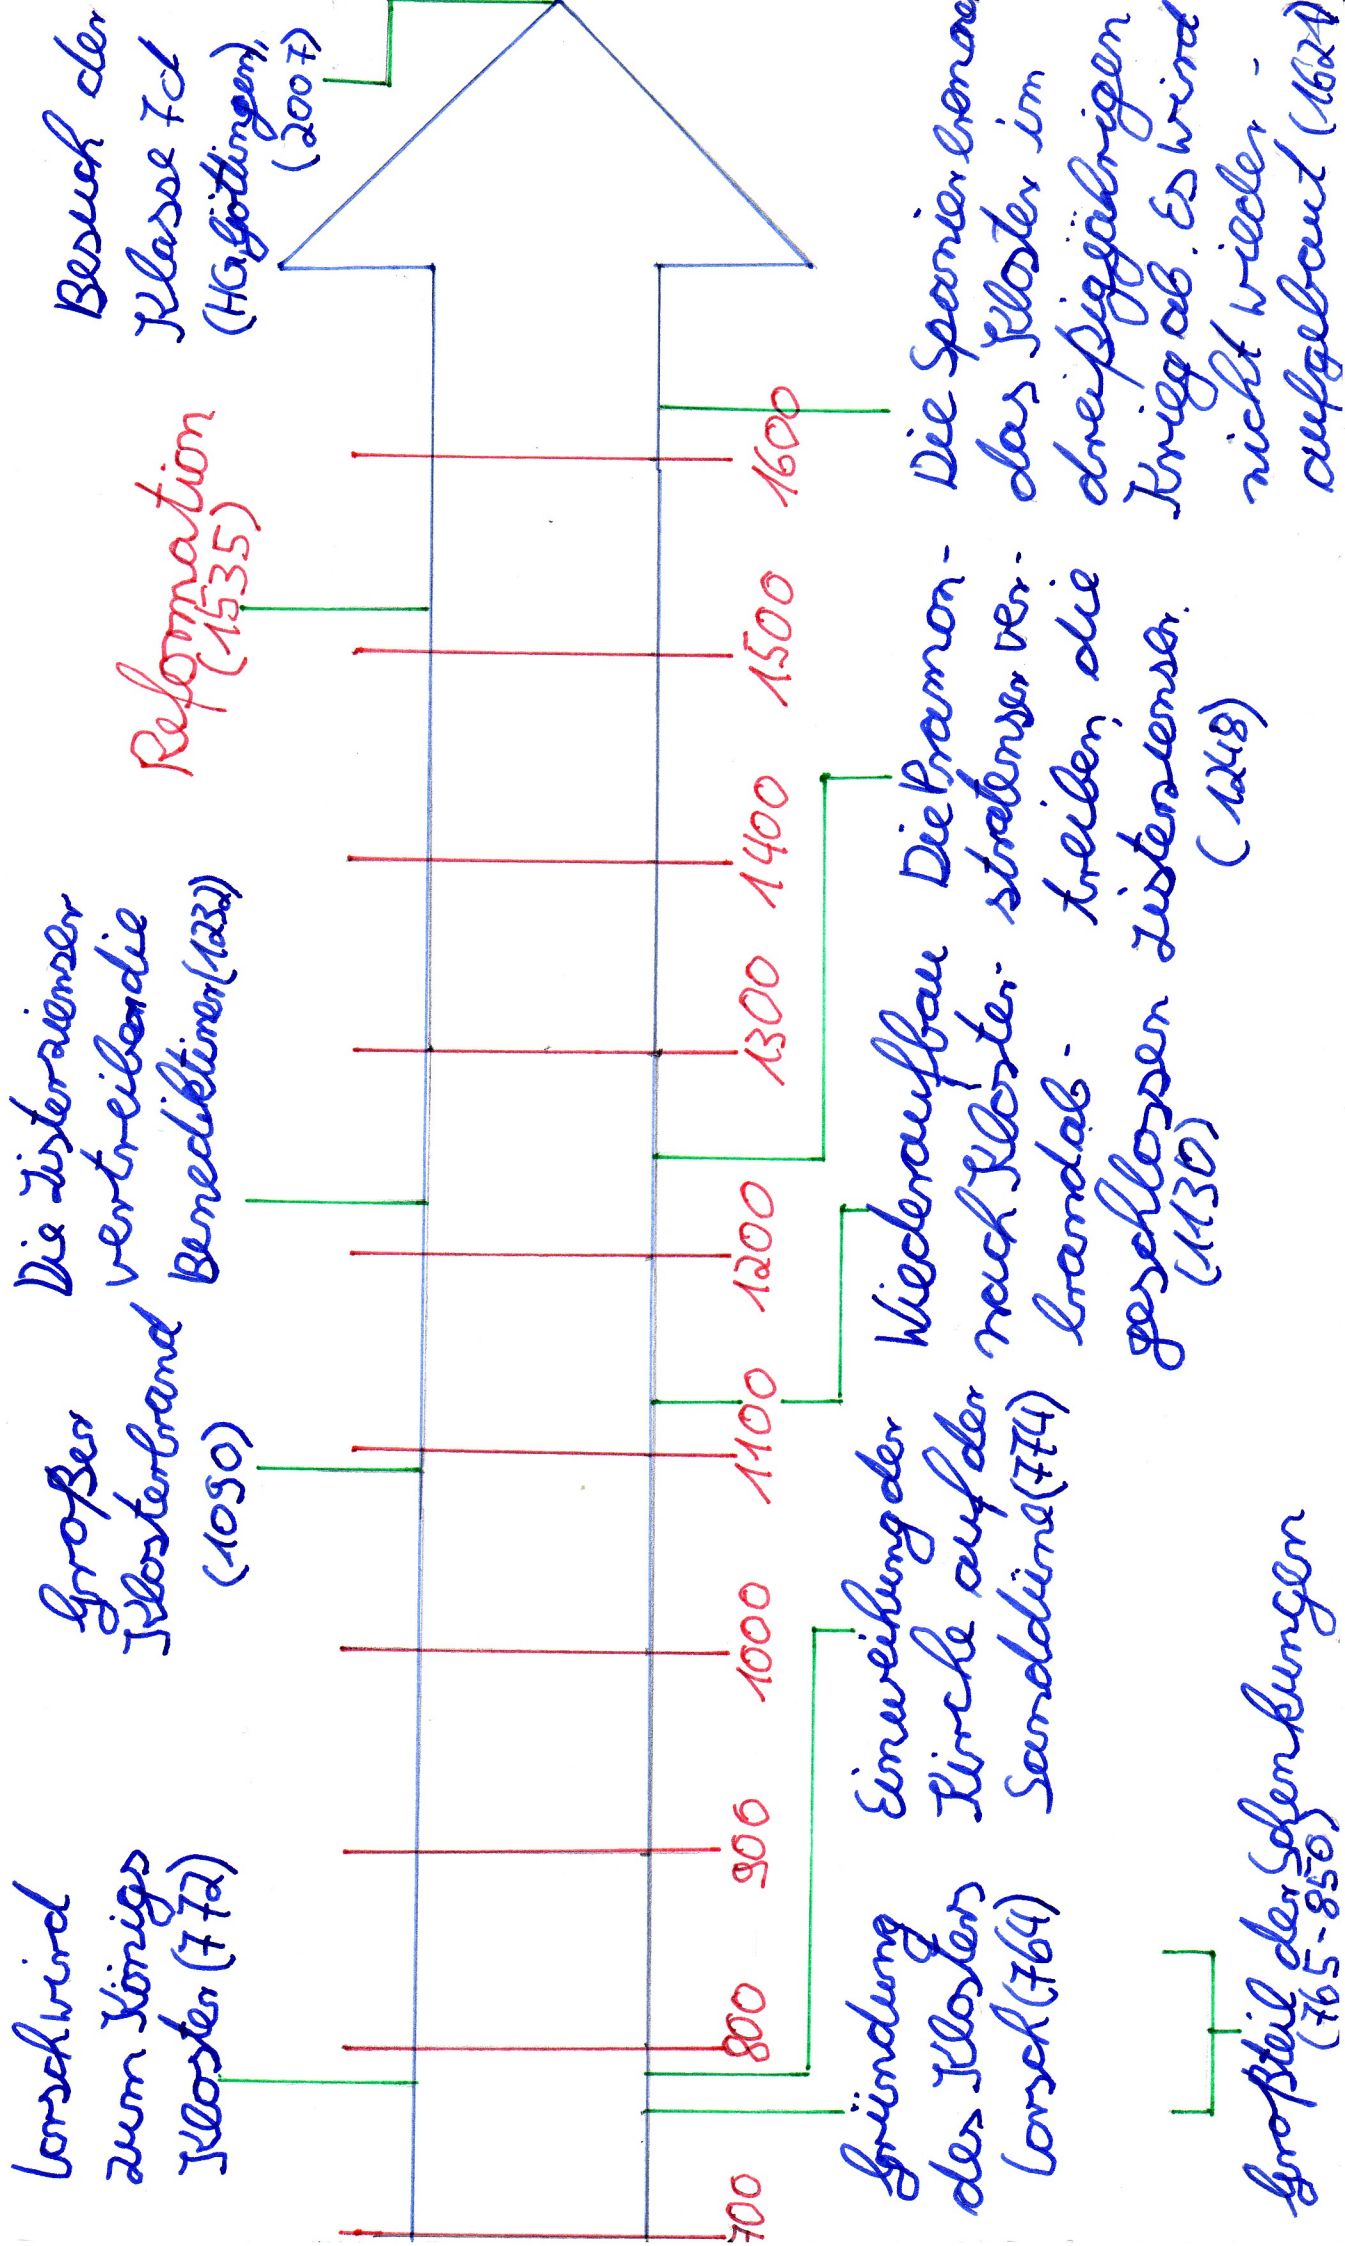 Lorsch wird
zum Königs
Kloster (772)
Großer
Klosterbrand
(1090)
Die Zisterzienser
vertreiben die
Benediktiner (1232)
Reformation
(1535)
Besuch der
Klasse 7d
(HG, Göttingen),
(2007)
700
800
900
1000
1100
1200
1300
1400
1500
1600
Gründung
des Klosters
Lorsch (764)
Einweihung der
Kirche auf der
Sanddüne (774)
Wiederaufbau
nach Kloster-
brand ab-
geschlossen
(1130)
Die Prämon-
stratenser ver-
treiben, die
Zisterzienser.
(1248)
Die Spanier brennen
das Kloster im
dreißigjährigen
Krieg ab. Es wird
nicht wieder-
aufgebaut (1621)
Großteil der Schenkungen
(765-850)